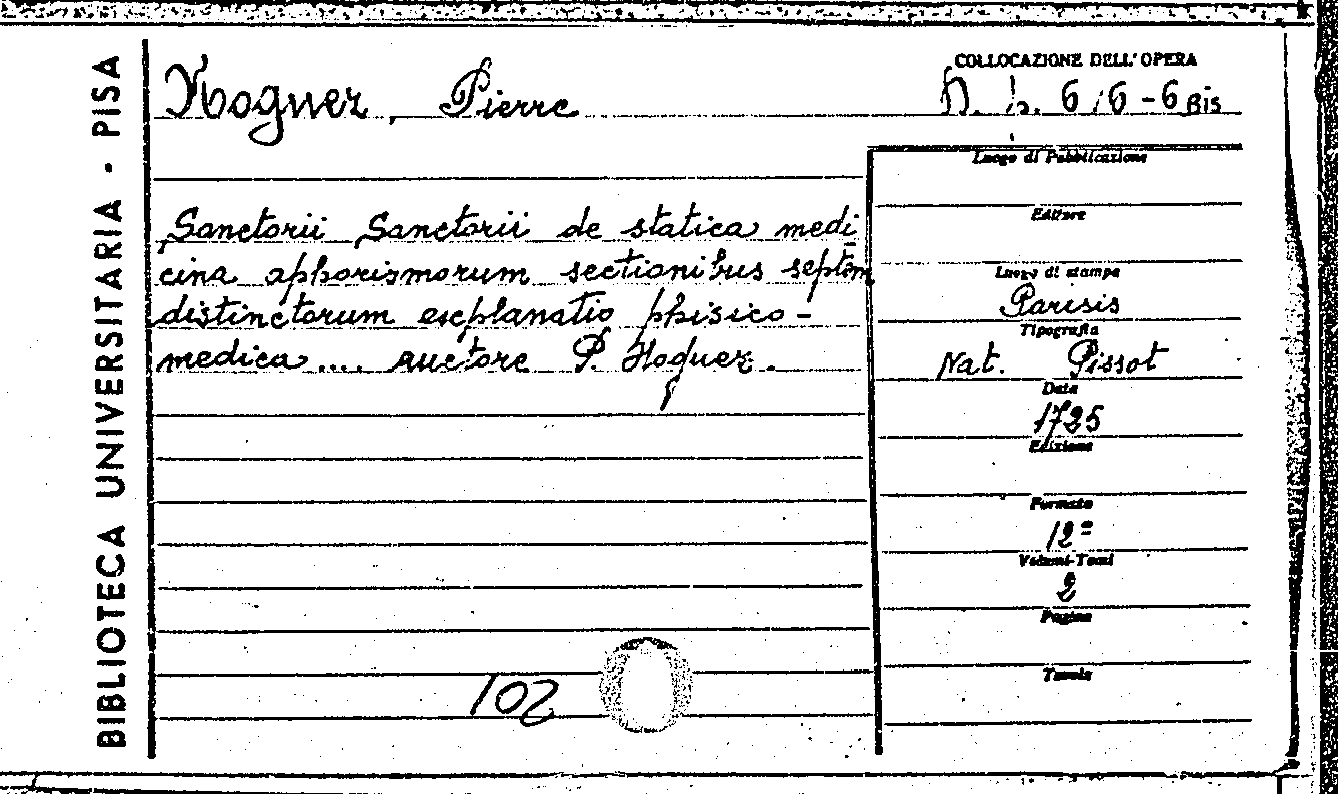 BIBLIOTECA UNIVERSITARIA - PISA
Noguez, Pierre
COLLOCAZIONE DELL'OPERA
D. h. 6/6-6 Bis
Sanctorii Sanctorii de statica medi
cina aphorismorum sectionibus septem
distinctorum explanatio phisico-
medica .... auctore P. Noguez.
102
Luogo di Pubblicazione
Editore
Luogo di stampa
Parisis
Tipografia
Nat. Pissot
Data
1725
Edizione
Formato
12º
Volumi-Tomi
2
Pagine
Tavole